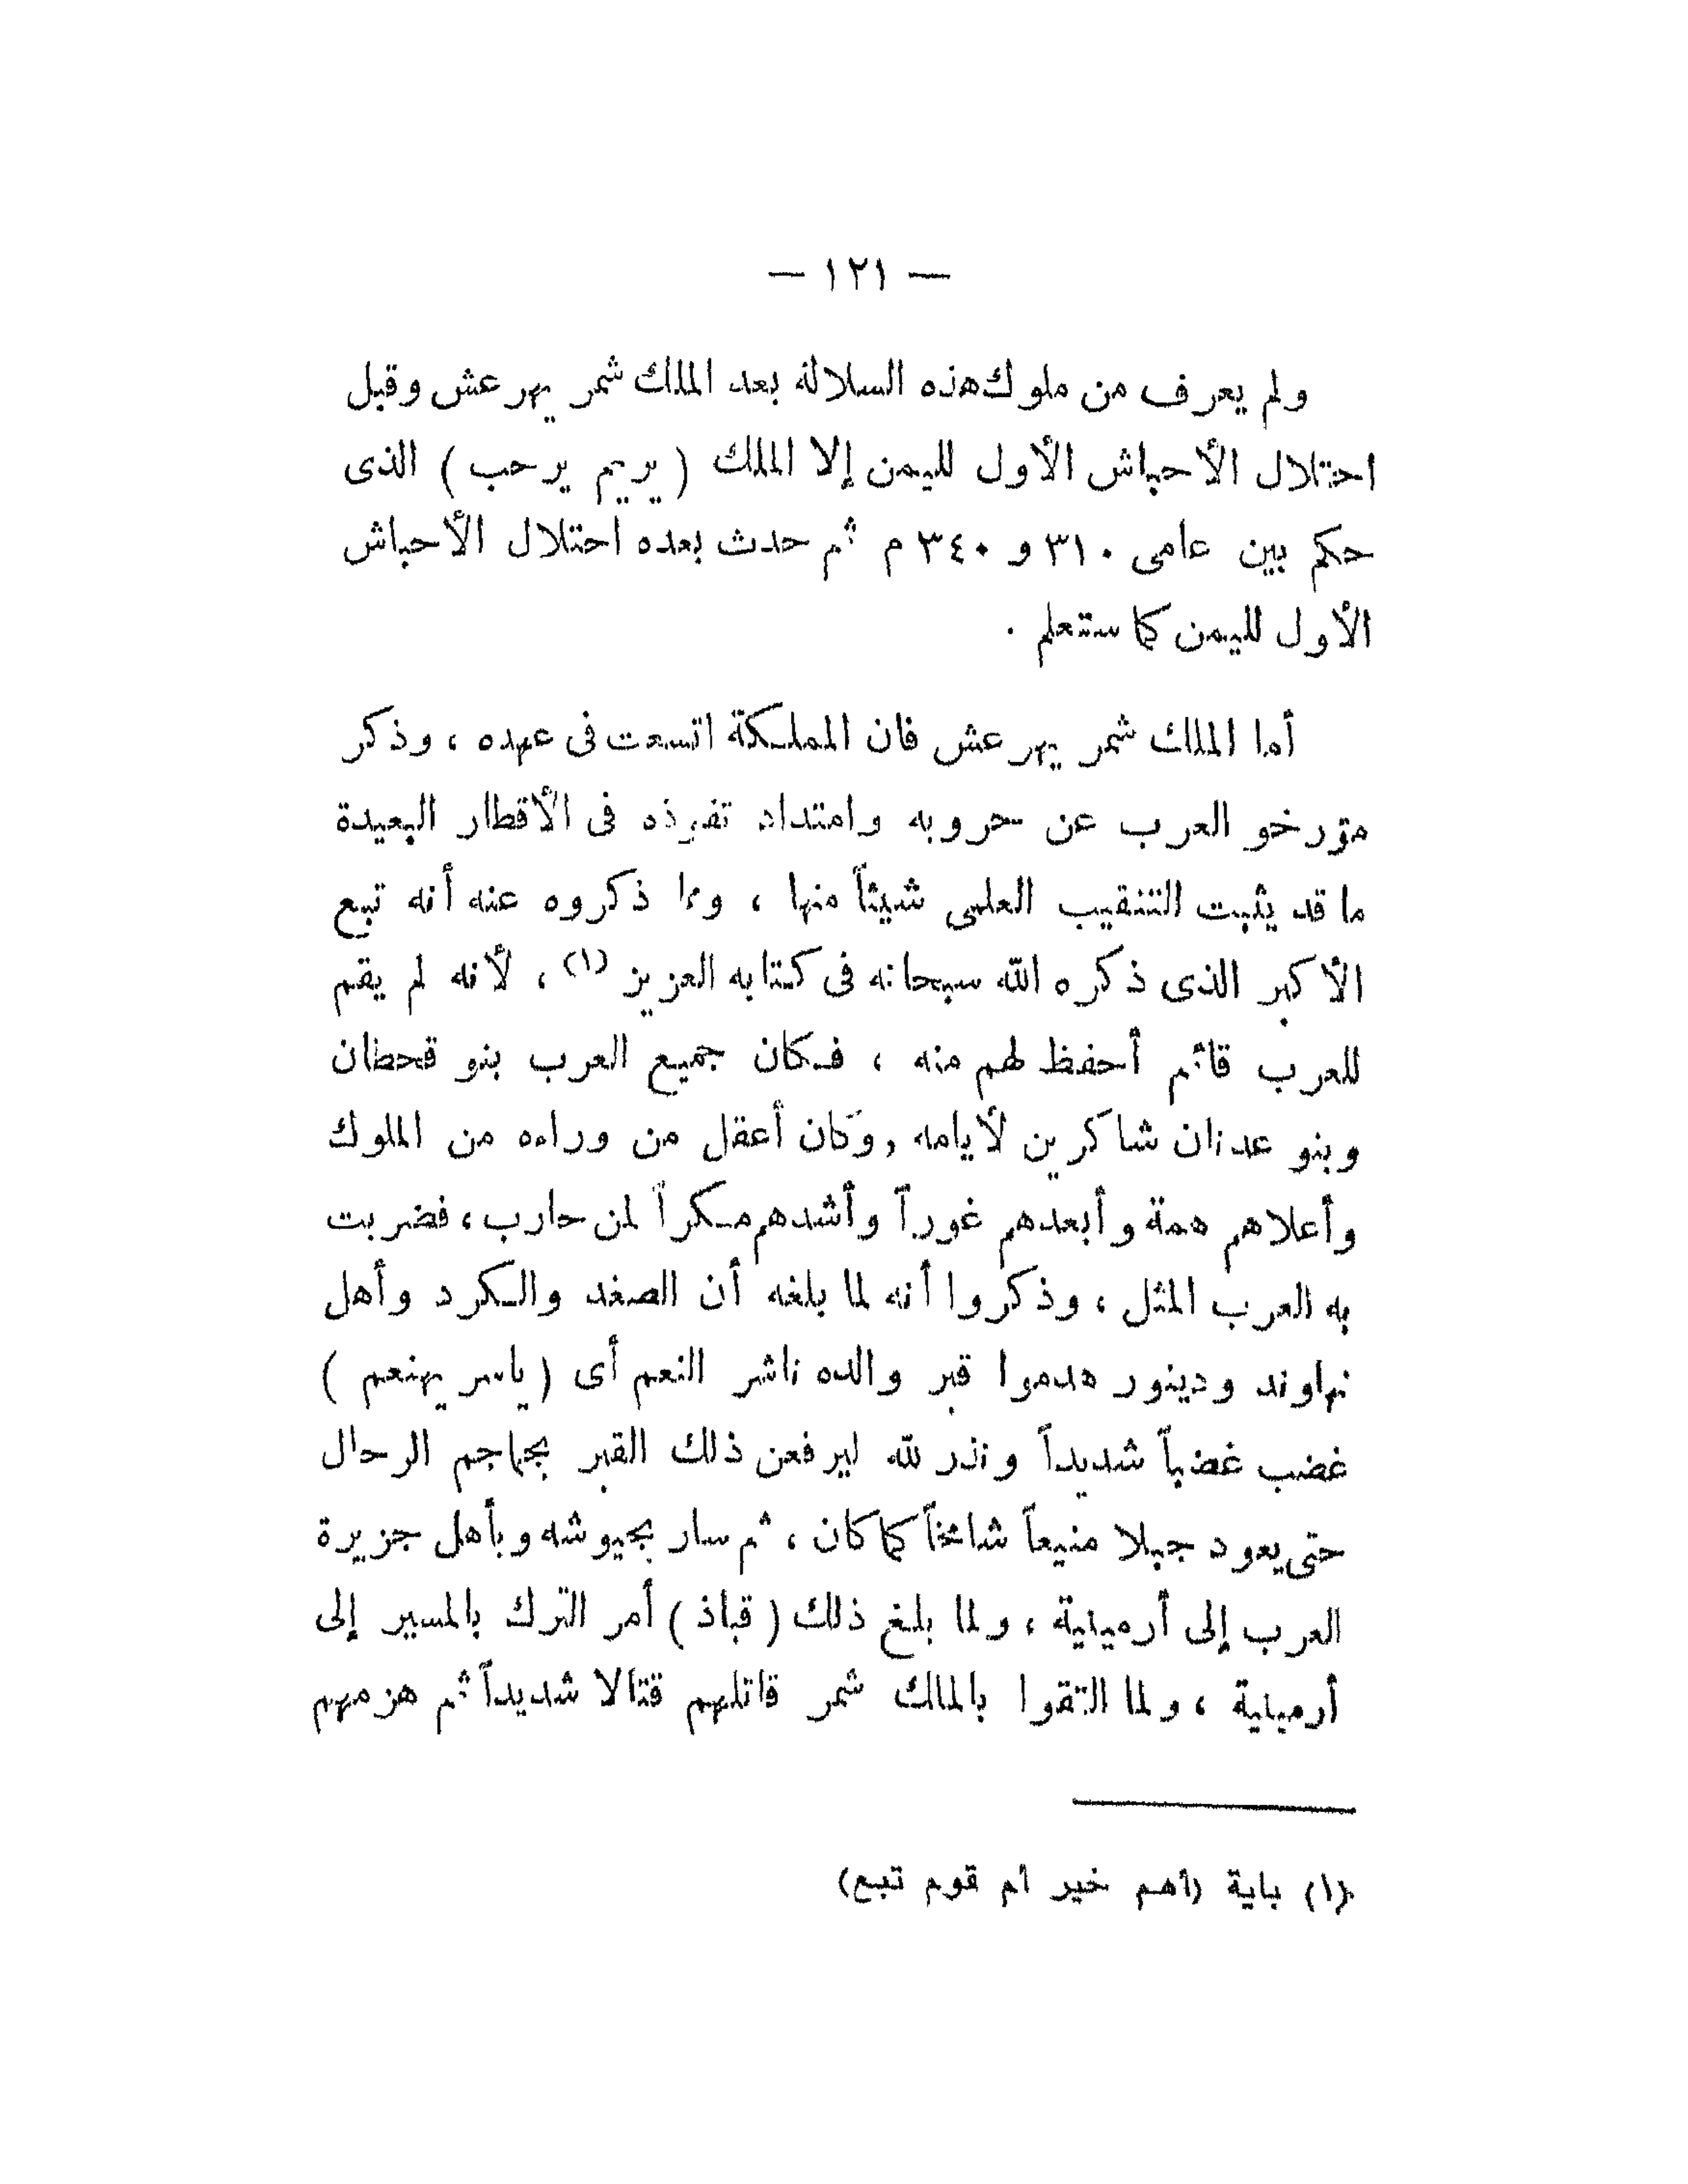 — ١٢١ —
ولم يعرف من ملوك هذه السلالة بعد الملك شمر يهرعش وقبل
احتلال الأحباش الأول لليمن إلا الملك ( يريم يرحب ) الذى
حكم بين عامى ٣١٠ و ٣٤٠ م ثم حدث بعده احتلال الأحباش
الأول لليمن كما ستعلم .
أما الملك شمر يهرعش فان المملكة اتسعت فى عهده ، وذكر
مؤرخو العرب عن حروبه وامتداد نفوذه فى الأقطار البعيدة
ما قد يثبت التنقيب العلمى شيئاً منها ، ومما ذكروه عنه أنه تبع
الأكبر الذى ذكره الله سبحانه فى كتابه العزيز (١) ، لأنه لم يقم
للعرب قائم أحفظ لهم منه ، فكان جميع العرب بنو قحطان
وبنو عدنان شاكرين لأيامه , وكان أعقل من وراءه من الملوك
وأعلاهم همة وأبعدهم غوراً وأشدهم مكراً لمن حارب ، فضربت
به العرب المثل ، وذكروا أنه لما بلغه أن الصغد والكرد وأهل
نهاوند ودينور هدموا قبر والده ناشر النعم أى ( ياسر يهنعم )
غضب غضباً شديداً ونذر لله ليرفعن ذلك القبر بجماجم الرحال
حتى يعود جبلا منيعاً شامخاً كما كان ، ثم سار بجيوشه وبأهل جزيرة
العرب إلى أرمينية ، ولما بلغ ذلك ( قباذ ) أمر الترك بالمسير إلى
أرمينية ، ولما التقوا بالملك شمر قاتلهم قتالا شديداً ثم هزمهم
(١) باية (أهم خير أم قوم تبع)